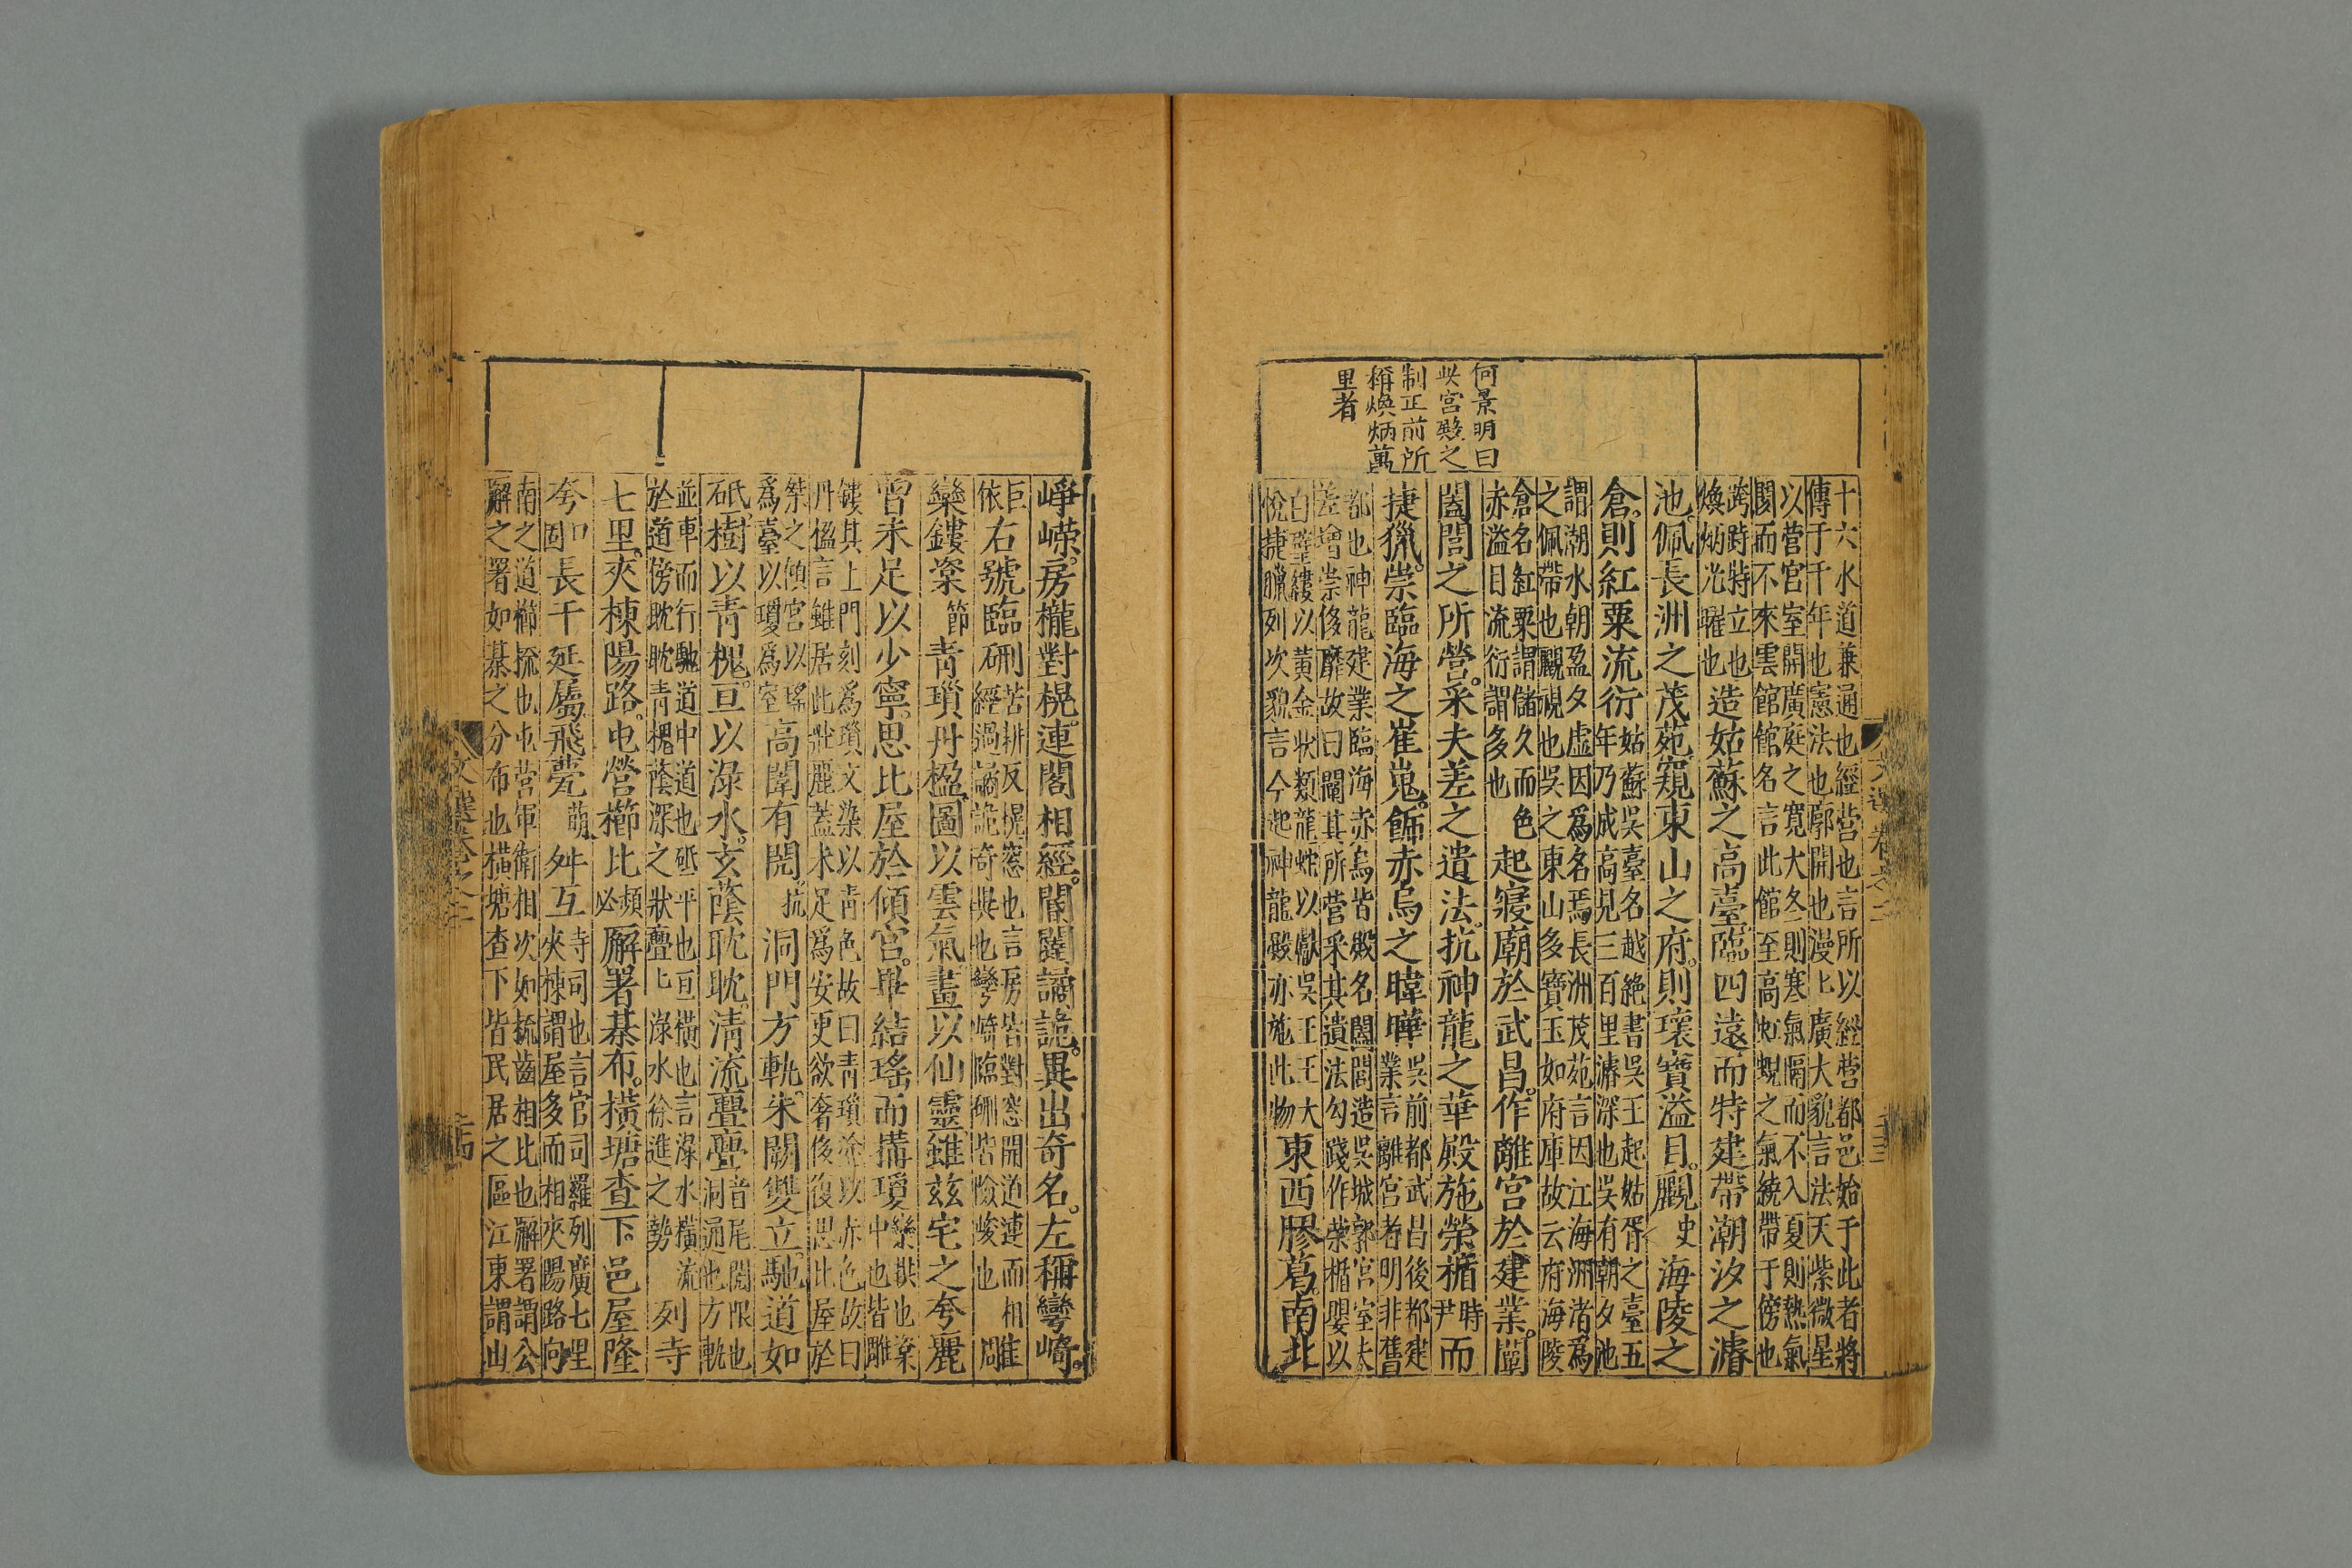 何景明曰
此宮殿之
制正前所
稱煥炳萬
里者
十六水道兼通也經營也言所以經營都邑始于此者將
傳于千年也憲法也廓開也漫上廣大貌言法天紫微星
以營宮室開廣庭之寬大冬則寒氣隔而不入夏則熱氣
閡而不來雲館館名言此館至高虹蜺之氣繞帶于傍也
跨跱特立也
煥炳光曜也
造姑蘇之高臺臨四遠而特建帶潮汐之濬
池佩長洲之茂苑窺東山之府則瓌寶溢目覼
史
海陵之
倉則紅粟流衍
姑蘇吳臺名越絕書吳王起姑胥之臺五
年乃成高見三百里濬深也吳有朝夕池
謂潮水朝盈夕虛因爲名焉長洲茂苑言因江海洲渚爲
之佩帶也覼視也吳之東山多寶玉如府庫故云府海陵
倉名紅粟謂儲久而色
赤溢目流衍謂多也
起寢廟於武昌作離宮於建業闡
闔閭之所營采夫差之遺法抗神龍之華殿施榮楯
時
尹
而
捷獵崇臨海之崔嵬飾赤烏之暐曄
吳前都武昌後都建
業言離宮者明非舊
都也神龍建業臨海赤烏皆殿名闔閭造吳城郭宮室夫
差增崇侈靡故曰闡其所營采其遺法勾踐作榮楯嬰以
白璧縷以黃金狀類龍蛇以獻吳王王大
悅捷臘列次貌言今起神龍殿亦施此物
東西膠葛南北
崢嶸房櫳對榥連閣相經閽闥譎詭異出奇名左稱彎崎
巨
依
右號臨硎
苦耕反榥窓也言房皆對窓開道連而相
經過譎詭奇異也彎崎臨硎皆險峻也
雕
欒鏤楶
節
青瑣丹楹圖以雲氣畫以仙靈雖茲宅之夸麗
曾未足以少寧思比屋於傾宮畢結瑤而搆瓊
欒栱也楶
中也皆雕
鏤其上門刻爲瑣文染以青色故曰青瑣塗以赤色故曰
丹楹言雖居此壯麗蓋未足爲安更欲奢侈復思比屋於
桀之傾宮以瑤
爲臺以瓊爲室
高闈有閌
抗
洞門方軌朱闕雙立馳道如
砥樹以青槐亘以淥水玄蔭耽耽清流亹亹
音尾閌限也
洞通也方軌
並車而行馳道中道也砥平也亘橫也言淥水橫流
於道傍耽耽青槐蔭深之狀亹上淥水徐進之勢
列寺
七里夾棟陽路屯營櫛比
頻
必
廨署棊布橫塘查下邑屋隆
夸
口
固
長干延屬飛甍
萌
舛互
寺司也言官司羅列廣七里
夾棟謂屋多而相夾陽路向
南之道櫛梳也屯營軍衛相次如梳齒相比也廨署謂公
廨之署如棊之分布也橫塘查下皆民居之區江東謂山
文選卷之三